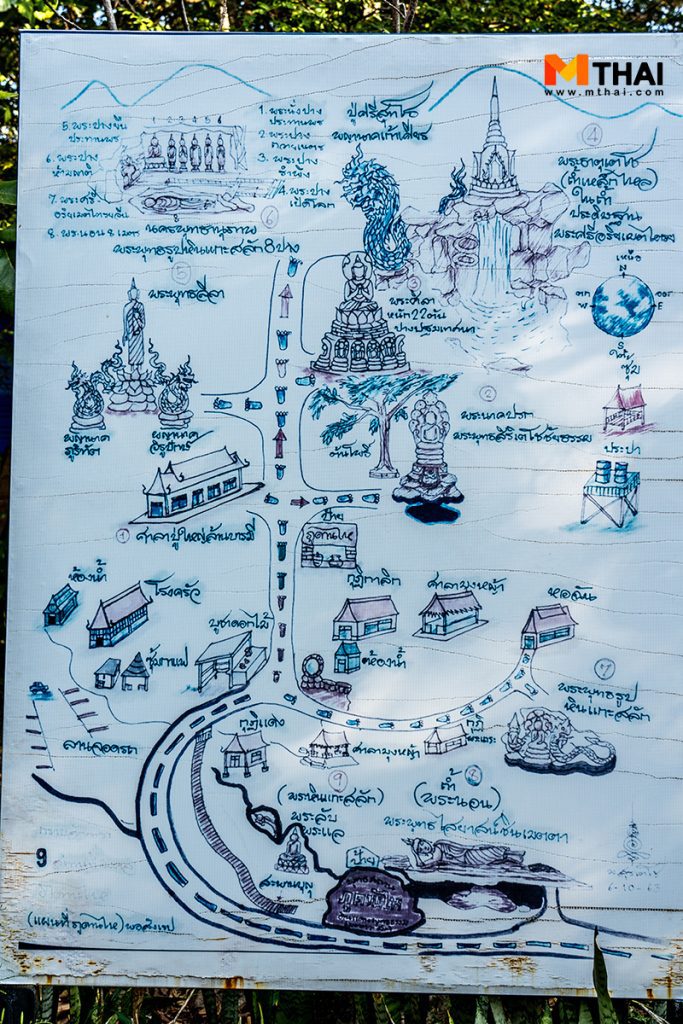 MTHAI
www.mthai.com
1 2 3 4 5 6
1. พระนั่งปาง
ประทานพร
2. พระปาง
3. พระปาง
รำพึง
4. พระปาง
เปิดโลก
5. พระปางยืน
ประทานพร
6. พระปาง
ห้ามญาติ
7. พระศรี
8. พระนอน 8 เมตร
6
นครพุทธานุภาพ
พระพุทธรูปหินแกะสลัก 8 ปาง
ปู่ศรีสุทโธ
พญานาคเก้าเศียร
4
(ถ้ำเหล็กไหล)
ในถ้ำ
ประดิษฐาน
พระศรีอริยเมตไตรย
เหนือ
N
ตก
W
ออก
E
S
ใต้
5
พระพุทธลีลา
พญานาค
ภูริทัต
พญานาค
วิรูปักษ์
3
พระศิลา
หนัก 22 ตัน
ปางปฐมเทศนา
ต้นโพธิ์
2
พระนาคปรก
ซุ้ม
ประปา
1
ศาลาปู่ใหญ่ล้านบารมี
ป้าย
ภูดานไห
ห้องน้ำ
โรงครัว
ซุ้มกาแฟ
บูชาดอกไม้
กุฏิกาลิก
ศาลามุงหญ้า
หอฉัน
ห้องน้ำ
7
พระพุทธรูป
หินแกะสลัก
ลานจอดรถ
กุฏิแดง
ศาลามุงหญ้า
กุฏิ
9
(พระหินแกะสลัก)
พระลับ
พระแล
8
ถ้ำ
(พระนอน)
พระพุทธไสยาสน์ชินเมตตา
สะพานบุญ
ป้าย
9
6-10-63
(แผนที่ ภูดานไห)